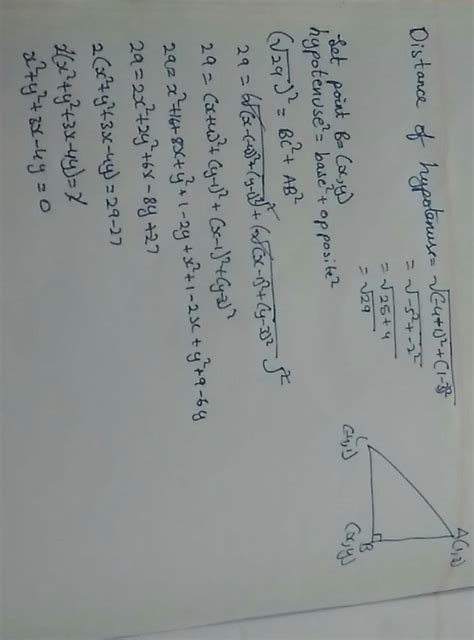 Distance of hypotenuse = √(-4+1)²+(1-3)²
= √-5²+-2²
= √25+4
= √29
Let point B = (x,y)
hypotenuse² = base² + opposite²
(√29)² = BC² + AB²
29 = (√(x-(-4))²+(y-1)²)² + (√(x-1)²+(y-3)²)²
29 = (x+4)²+(y-1)²+(x-1)²+(y-3)²
29 = x²+16+8x+y²+1-2y+x²+1-2x+y²+9-6y
29 = 2x²+2y²+6x-8y+27
2(x²+y²+3x-4y) = 29-27
2(x²+y²+3x-4y) = 2
x²+y²+3x-4y = 0
A(1,3)
C
(-4,1)
B
(x,y)